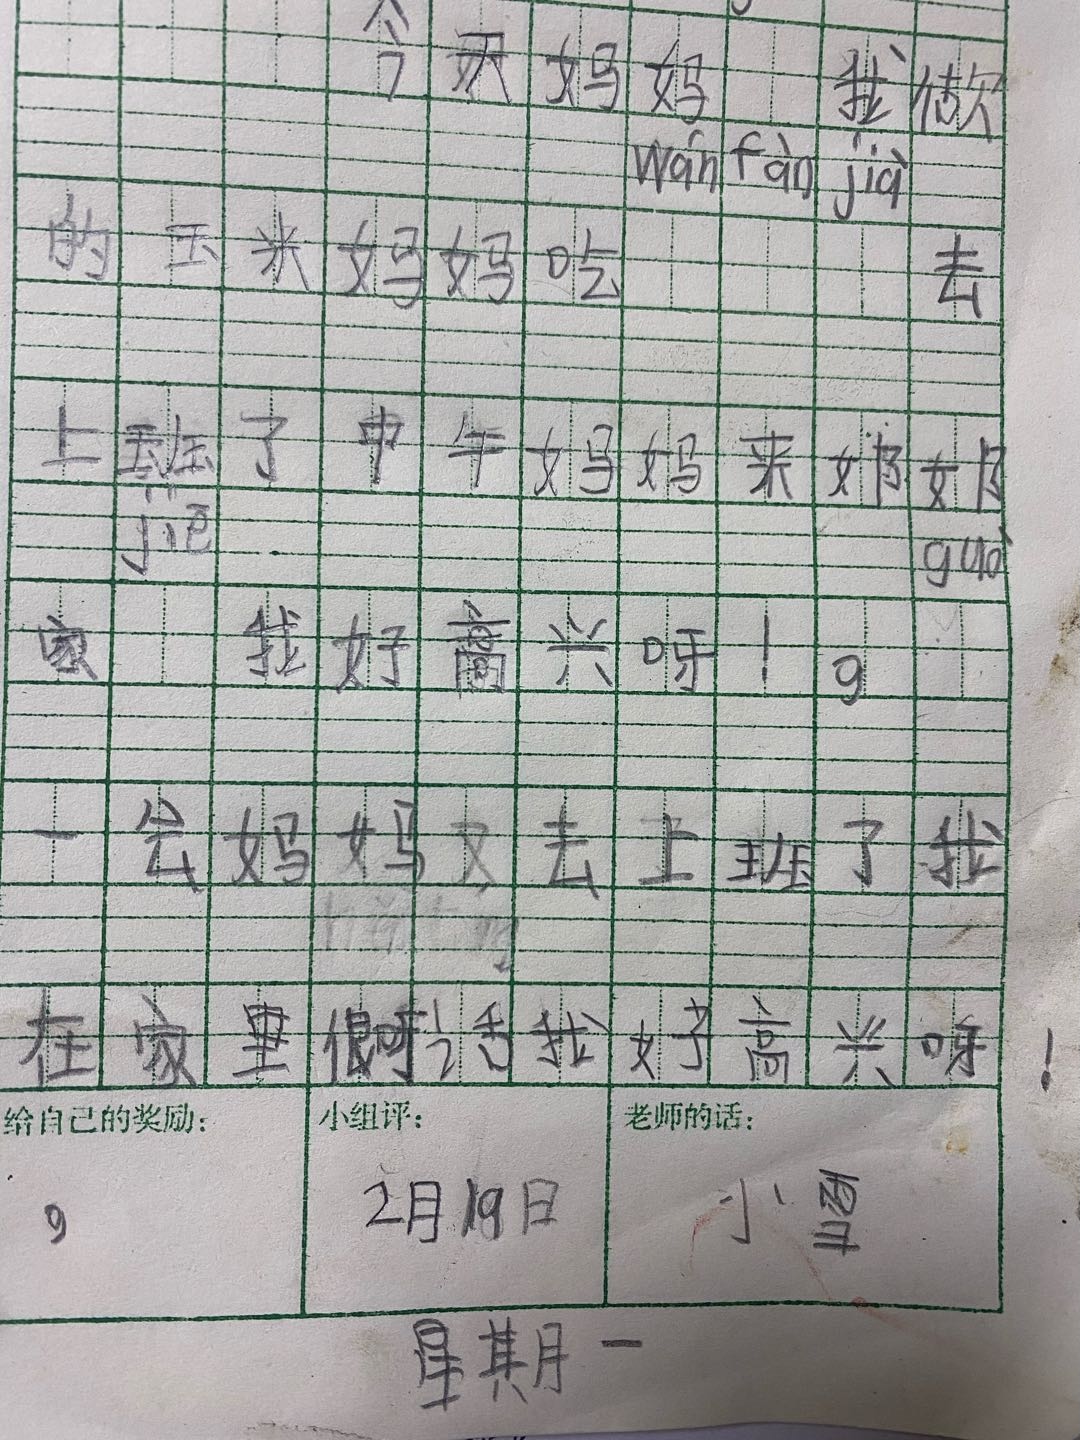 今天妈妈 我做
wán fàn jià
的玉米妈妈吃 去
上班了中午妈妈来奶奶
jiē guò
家 我好高兴呀！9
一会妈妈妈又去上班了我
在家里很呀 活我好高兴呀！
给自己的奖励： 小组评： 老师的话：
9 2月19日 小雪
星期一